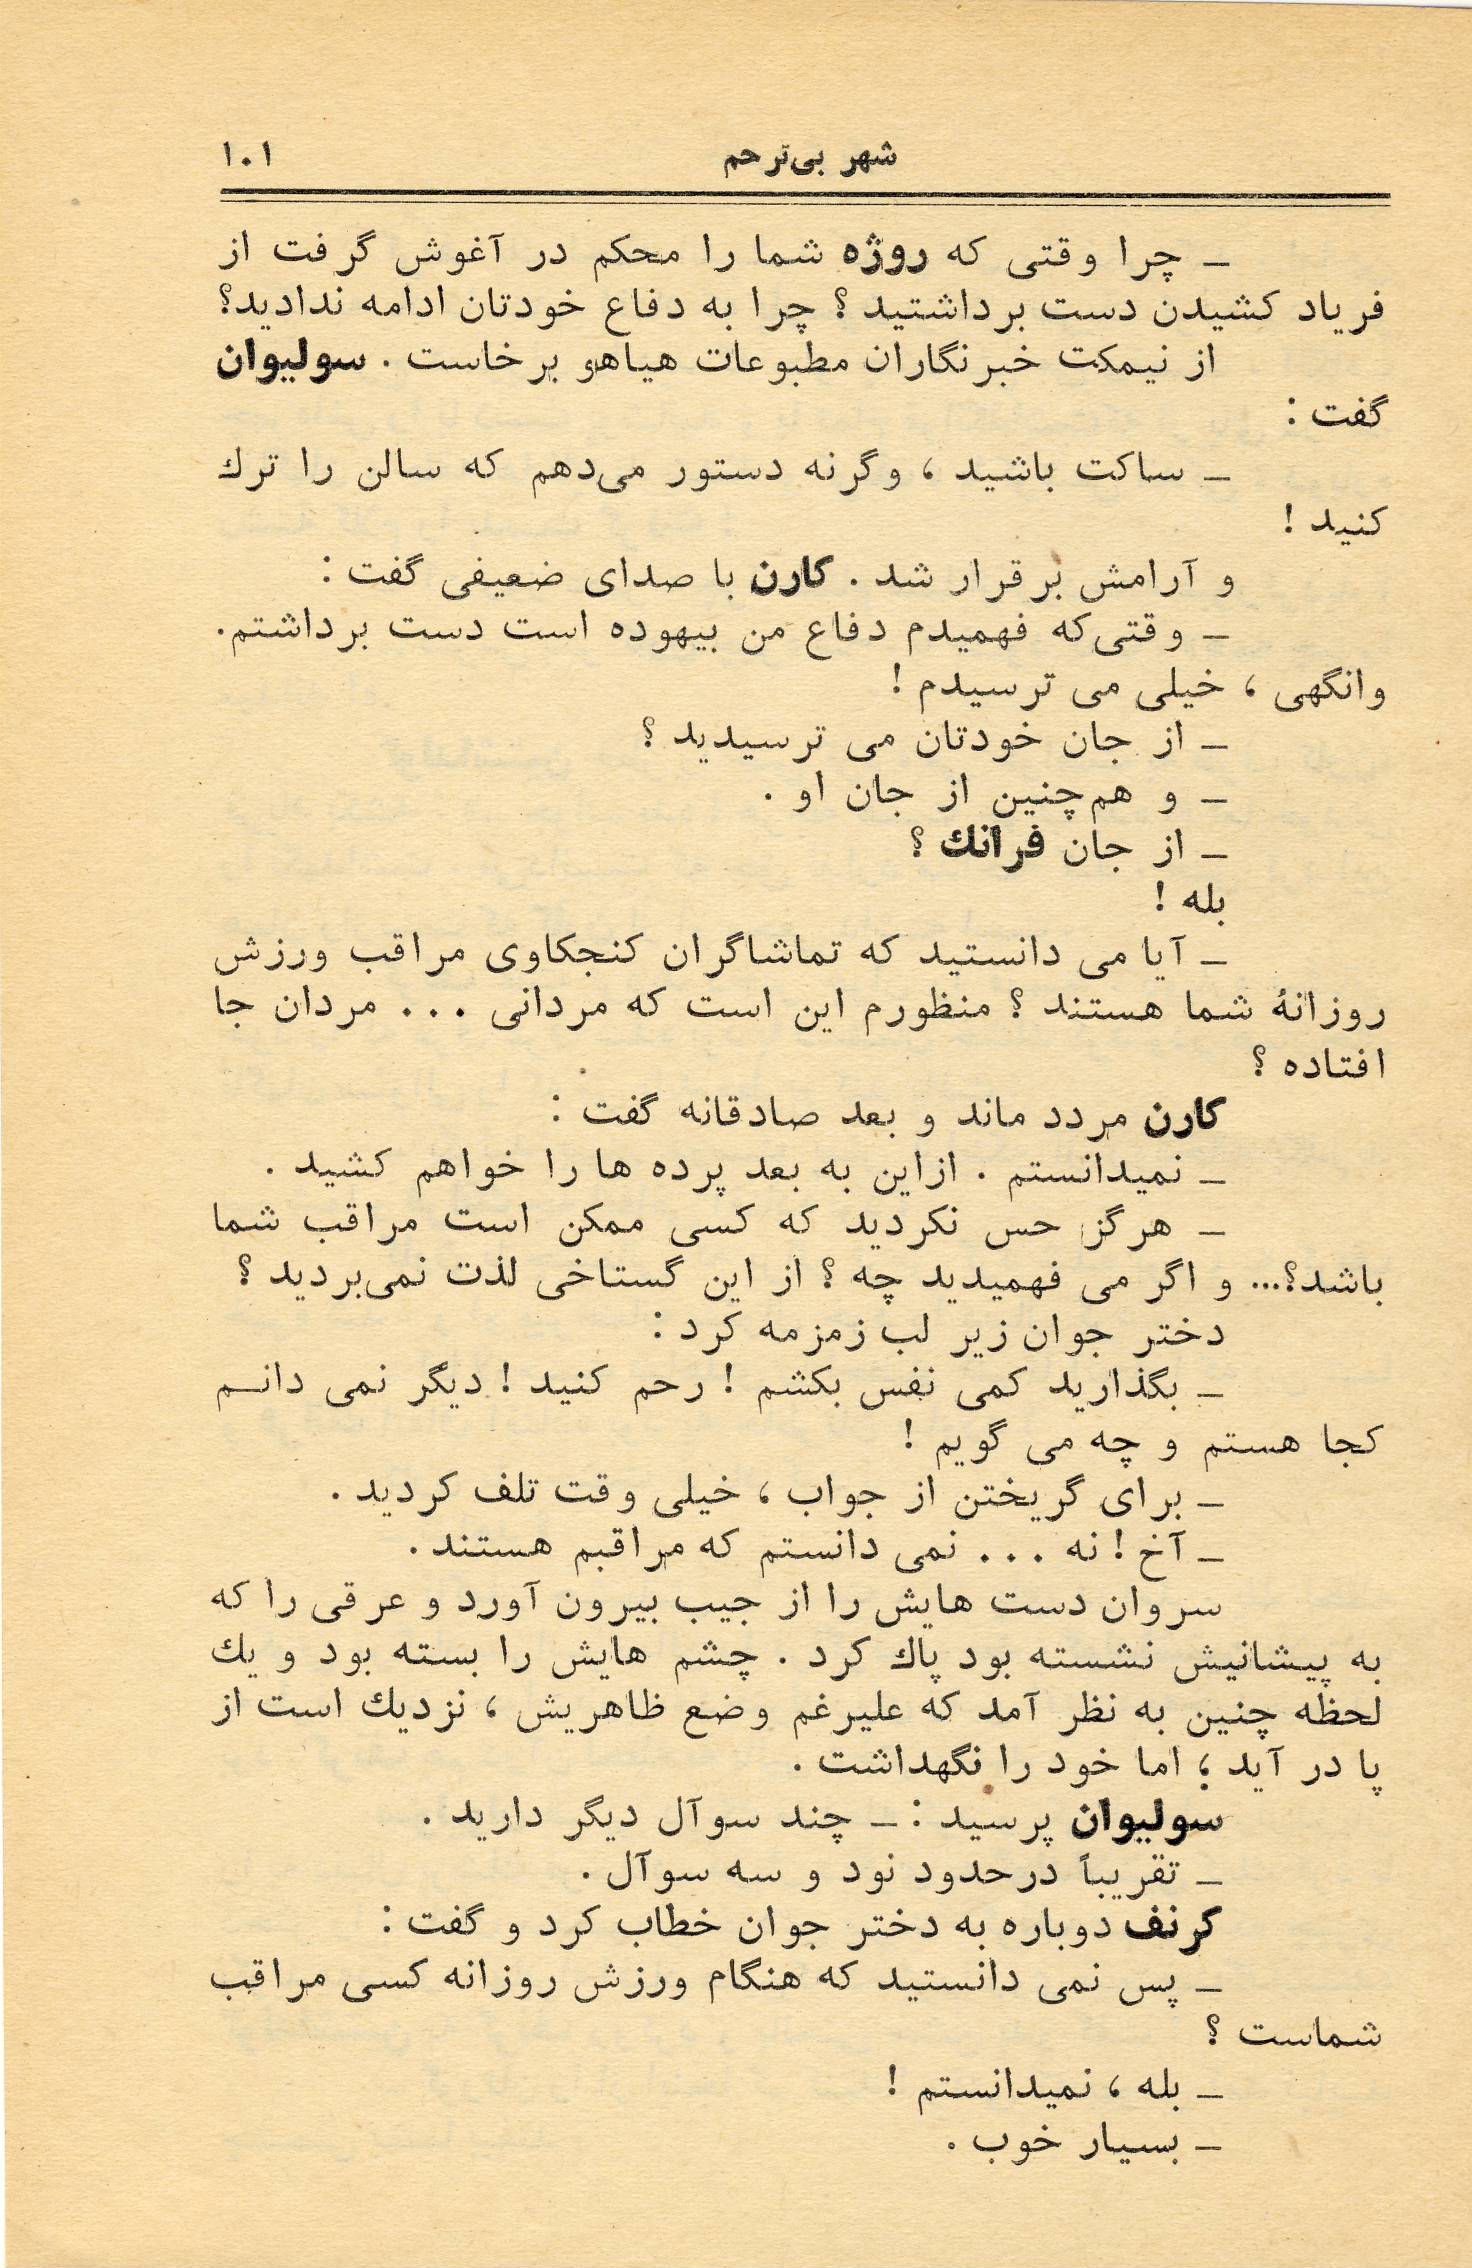 شهر بی‌ترحم ۱۰۱
ـ چرا وقتی که روژه شما را محکم در آغوش گرفت از
فریاد کشیدن دست برداشتید ؟ چرا به دفاع خودتان ادامه ندادید؟
از نیمکت خبرنگاران مطبوعات هیاهو برخاست . سولیوان
گفت :
ـ ساکت باشید ، وگرنه دستور می‌دهم که سالن را ترك
کنید !
و آرامش برقرار شد . کارن با صدای ضعیفی گفت :
ـ وقتی‌که فهمیدم دفاع من بیهوده است دست برداشتم.
وانگهی ، خیلی می ترسیدم !
ـ از جان خودتان می ترسیدید ؟
ـ و هم‌چنین از جان او .
ـ از جان فرانك ؟
بله !
ـ آیا می دانستید که تماشاگران کنجکاوی مراقب ورزش
روزانهٔ شما هستند ؟ منظورم این است که مردانی ... مردان جا
افتاده ؟
کارن مردد ماند و بعد صادقانه گفت :
ـ نمیدانستم . ازاین به بعد پرده ها را خواهم کشید .
ـ هرگز حس نکردید که کسی ممکن است مراقب شما
باشد؟... و اگر می فهمیدید چه ؟ از این گستاخی لذت نمی‌بردید ؟
دختر جوان زیر لب زمزمه کرد :
ـ بگذارید کمی نفس بکشم ! رحم کنید ! دیگر نمی دانـم
کجا هستم و چه می گویم !
ـ برای گریختن از جواب ، خیلی وقت تلف کردید .
ـ آخ ! نه ... نمی دانستم که مراقبم هستند .
سروان دست هایش را از جیب بیرون آورد و عرقی را که
به پیشانیش نشسته بود پاك کرد . چشم هایش را بسته بود و یك
لحظه چنین به نظر آمد که علیرغم وضع ظاهریش ، نزدیك است از
پا در آید ؛ اما خود را نگهداشت .
سولیوان پرسید : ـ چند سوآل دیگر دارید .
ـ تقریباً درحدود نود و سه سوآل .
کرنف دوباره به دختر جوان خطاب کرد و گفت :
ـ پس نمی دانستید که هنگام ورزش روزانه کسی مراقب
شماست ؟
ـ بله ، نمیدانستم !
ـ بسیار خوب .